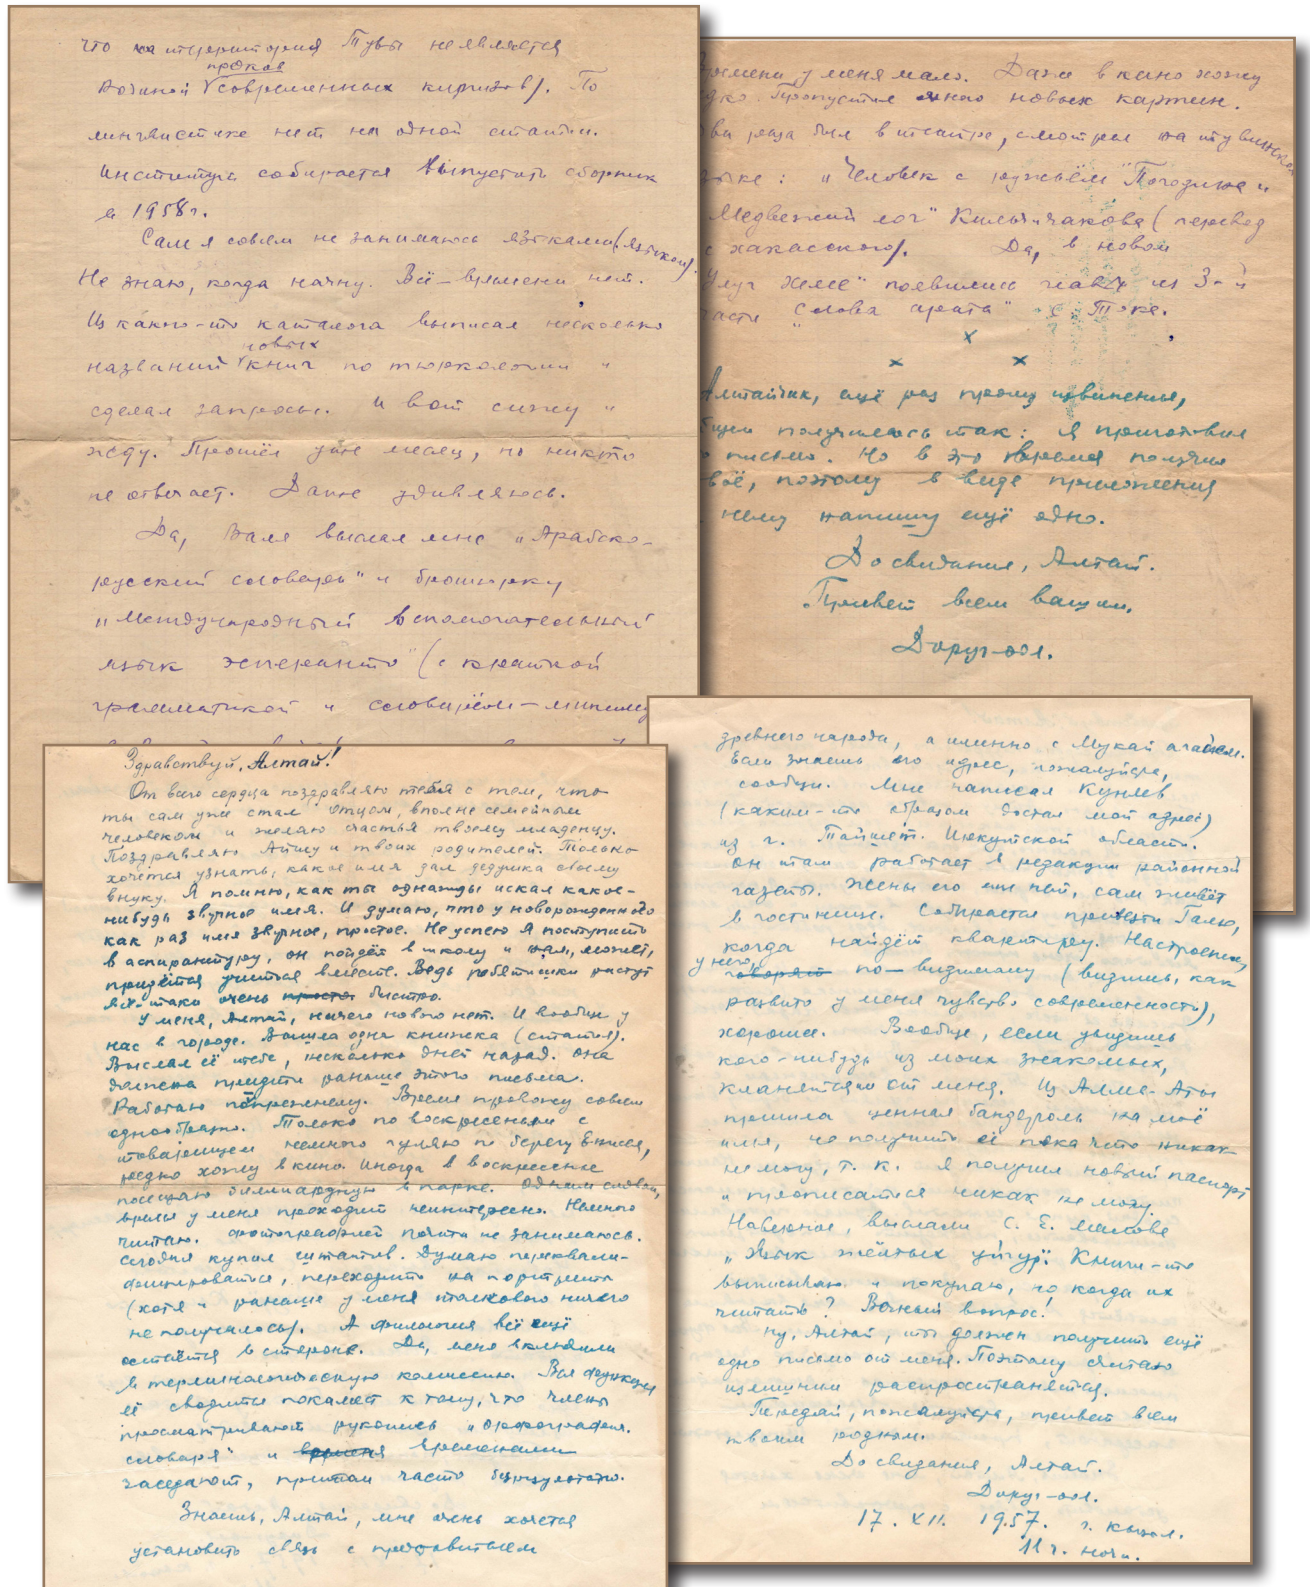 что на территория Тувы не является
родиной предков современных киргизов). По
лингвистике нет ни одной статьи.
Институт собирается выпустить сборник
в 1958 г.
Сам я совсем не занимаюсь языками (языком).
Не знаю, когда начну. Всё – времени нет.
Из какого-то каталога выписал несколько
названий новых книг по тюркологии и
сделал запросы. И вот сижу и
жду. Прошёл уже месяц, но никто
не отвечает. Даже удивляюсь.
Да, Валя выслал мне „Арабско-
русский словарь" и брошюрку
„Международный вспомогательный
язык эсперанто" (с краткой
грамматикой и словарём-минимум
времени у меня мало. Даже в кино хожу
Пропустил много новых картин.
два раза был в театре, смотрел на тувинском
„Человек с ружьём" Погодина и
Медвежий лог" Кильчичакова (перевод
с хакасского). Да, в новом
Улуг Хеме" появились главы из 3-й
части „Слова арата" С. Тока.
х
х х
Алтайчик, ещё раз прошу извиненья,
получилось так: Я приготовил
письмо. Но в это время получил
твоё, поэтому в виде приложения
к нему напишу ещё одно.
До свидания, Алтай.
Привет всем вашим.
Доруг-оол.
Здравствуй, Алтай!
От всего сердца поздравляю тебя с тем, что
ты сам уже стал отцом, вполне семейным
человеком и желаю счастья твоему младенцу.
Поздравляю и твоих родителей. Только
хочется узнать, какое имя дал дедушка своему
внуку. Я помню, как ты однажды искал какое-
нибудь звучное имя. И думаю, что у новорожденного
как раз имя звучное, простое. Не успею я поступить
в аспирантуру, он пойдёт в школу и нам, может,
придётся учиться вместе. Ведь ребятишки растут
всё-таки очень просто быстро.
У меня, Алтай, ничего нового нет. И вообще у
нас в городе. Вышла одна книжка (статья).
Выслал её тебе, несколько дней назад. Она
должна придти раньше этого письма.
Работаю по-прежнему. Время провожу совсем
однообразно. Только по воскресеньям с
товарищем немного гуляю по берегу Енисея,
редко хожу в кино. Иногда в воскресенье
посещаю биллиардную в парке. Одним словом,
время у меня проходит неинтересно. Немного
читаю. Фотографией почти не занимаюсь.
Сегодня купил штатив. Думаю переквали-
фицироваться, переходить на портреты
(хотя и раньше у меня толкового ничего
не получилось). А филология всё ещё
остаётся в стороне. Да, меня включили
в терминологическую комиссию. Вся функция
её сводится покамест к тому, что члены
просматривают рукопись „орфографич.
словаря" и время временами
заседают, притом часто безрезультатно.
Знаешь, Алтай, мне очень хочется
установить связь с представителем
древнего народа, а именно с Мукай агайом.
Если знаешь его адрес, пожалуйста,
сообщи. Мне написал Куулев
(каким-то образом достал мой адрес)
из г. Тайшет. Иркутской области.
Он там работает в редакции районной
газеты. Жены его там нет, сам живёт
в гостинице. Собирается привезти Галю,
когда найдёт квартиру. Настроение,
у него, говорят по-видимому (видишь, как
развито у меня чувство современности),
хорошее. Вообще, если увидишь
кого-нибудь из моих знакомых,
кланяйся им от меня. Из Алма-Аты
пришла ценная бандероль на моё
имя, но получить её пока что никак
не могу, т. к. я получил новый паспорт
и прописаться никак не могу.
Наверное, выслали С. Е. Малова
„Язык жёлтых уйгур". Книги-то
выписываю и покупаю, но когда их
читать? Вечный вопрос!
Ну, Алтай, ты должен получить ещё
одно письмо от меня. Поэтому считаю
излишним распространяться.
Передай, пожалуйста, привет всем
твоим родным.
До свидания, Алтай.
Доруг-оол.
17. XII. 1957. г. Кызыл.
11 г. ночи.